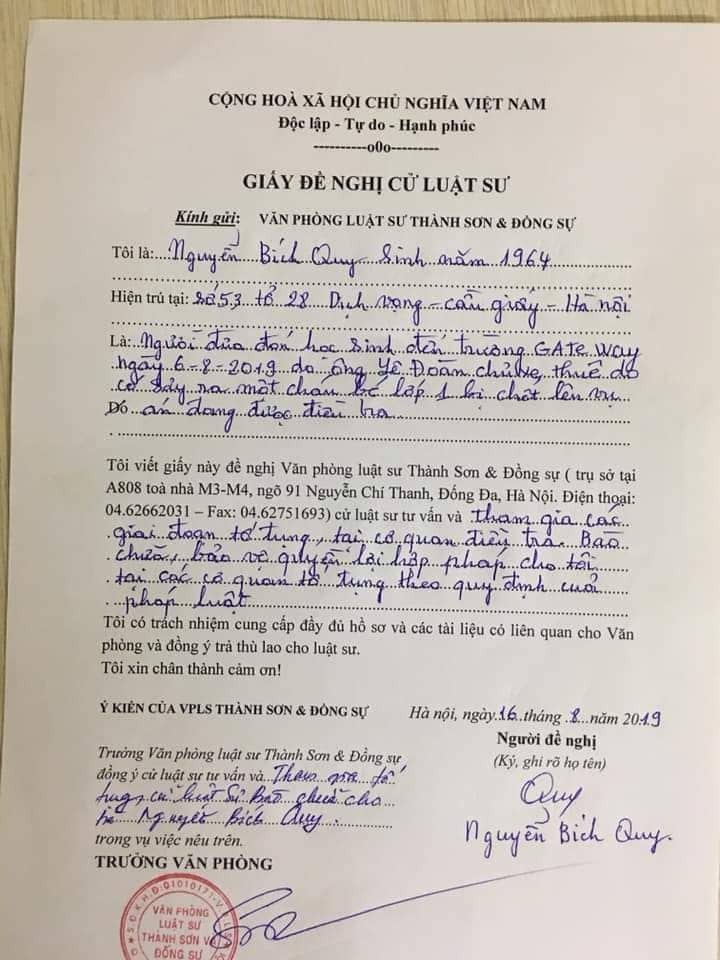 CỘNG HOÀ XÃ HỘI CHỦ NGHĨA VIỆT NAM
Độc lập - Tự do - Hạnh phúc
----------o0o---------
GIẤY ĐỀ NGHỊ CỬ LUẬT SƯ
Kính gửi: VĂN PHÒNG LUẬT SƯ THÀNH SƠN & ĐỒNG SỰ
Tôi là: Nguyễn Bích Quy sinh năm 1964
Hiện trú tại: số 53 tổ 28 Dịch vọng - cầu giấy - Hà nội
Là: Người đưa đón học sinh đến trường GATE Way
ngày 6-8-2019 do ông Yê Đoàn chủ xe, thuê do
có sảy ra một cháu bé lớp 1 bị chết lên vụ
Do án đang được điều tra
Tôi viết giấy này đề nghị Văn phòng luật sư Thành Sơn & Đồng sự ( trụ sở tại
A808 toà nhà M3-M4, ngõ 91 Nguyễn Chí Thanh, Đống Đa, Hà Nội. Điện thoại:
04.62662031 – Fax: 04.62751693) cử luật sư tư vấn và tham gia các
giai đoạn tố tụng, tại cơ quan điều tra. Bào
chữa, bảo vệ quyền lợi hợp pháp cho tôi
tại các cơ quan tố tụng theo quy định cuả
pháp luật
Tôi có trách nhiệm cung cấp đầy đủ hồ sơ và các tài liệu có liên quan cho Văn
phòng và đồng ý trả thù lao cho luật sư.
Tôi xin chân thành cảm ơn!
Ý KIẾN CỦA VPLS THÀNH SƠN & ĐỒNG SỰ
Trưởng Văn phòng luật sư Thành Sơn & Đồng sự
đồng ý cử luật sư tư vấn và Tham gia tố
tụng cử luật sư Bào chữa cho
bà Nguyễn Bích Quy.
trong vụ việc nêu trên.
TRƯỞNG VĂN PHÒNG
Hà nội, ngày 16 tháng 8 năm 2019
Người đề nghị
(Ký, ghi rõ họ tên)
Quy
Nguyễn Bích Quy.
VĂN PHÒNG
LUẬT SƯ
THÀNH SƠN VÀ
ĐỒNG SỰ